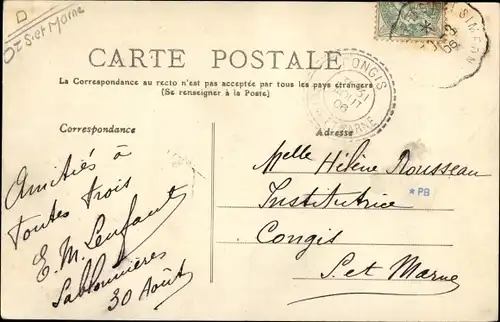 D
Dz S. et Marne
CARTE POSTALE
La Correspondance au recto n'est pas acceptée par tous les pays étrangers
(Se renseigner à la Poste)
CONGIS
31
AOUT
06
MARNE
Correspondance
Adresse
Amitiés à
toutes trois
E. M. Lenfant
Sablonnières
30 Août
Melle Hélène Rousseau
Institutrice
*PB
Congis
S. et Marne